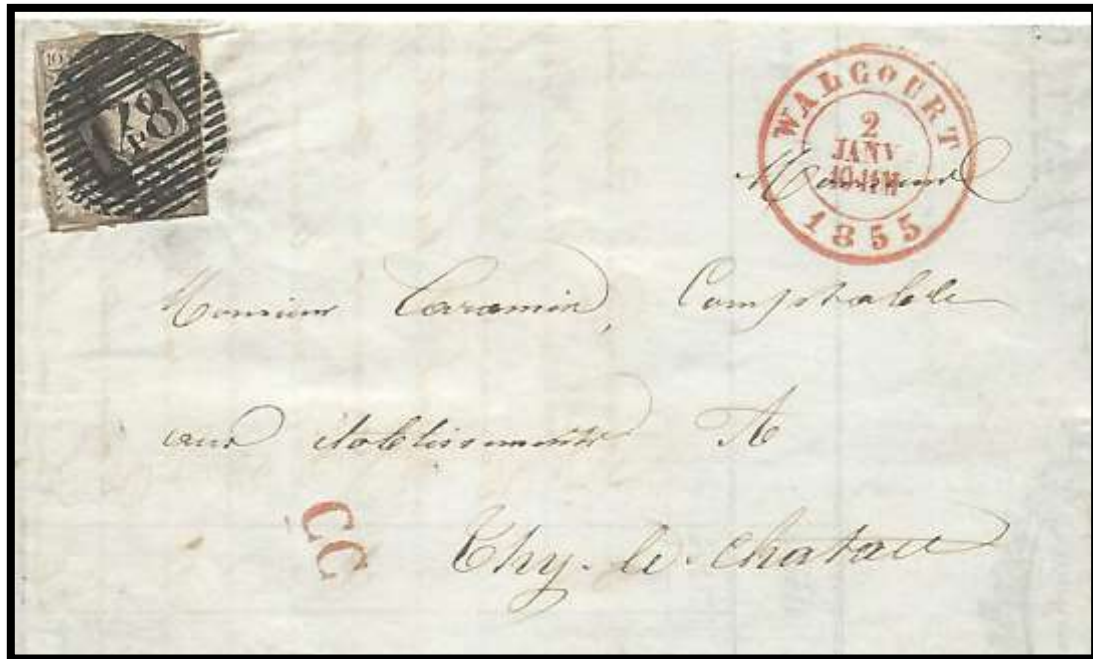 10
WALCOURT
2
JANV
1855
Monsieur
Monsieur Caramin, Comptable
aux établissements A
CC
Thy-le-chatau